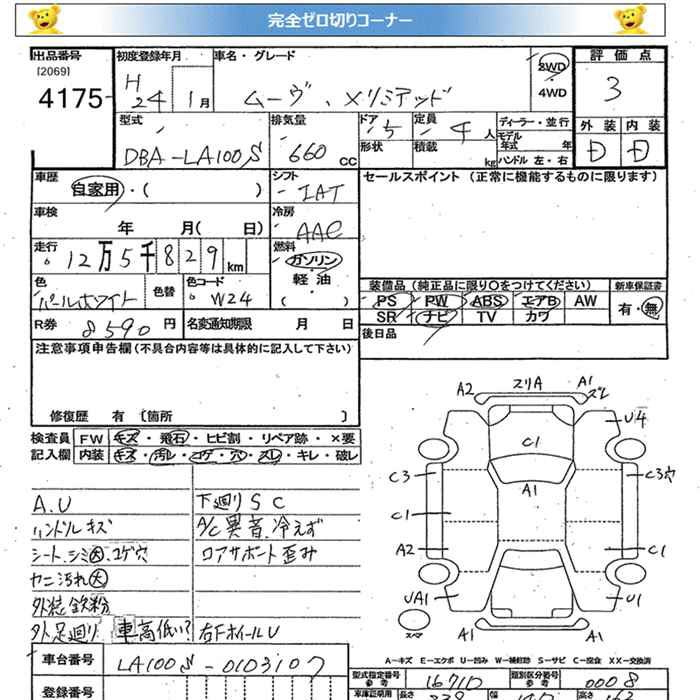 完全ゼロ切りコーナー
出品番号 初度登録年月 車名・グレード 評価点
[2069] H 2WD
4175 24 1月 ムーヴ、メリミテッド ・4WD 3
型式 排気量 ドア 5 定員 4人 ディーラー・並行 外装 内装
モデル年式 年
DBA-LA100S 660 CC 形状 積載 kg ハンドル 左・右 D D
車歴 シフト セールスポイント (正常に機能するものに限ります)
自家用・( ) IAT
車検 冷房
年 月( 日) AAC
走行 燃料
12万5千829km ガソリン・
軽油 装備品(純正品に限り〇をつけてください) 新車保証書
色 色替 色コード ・( ) PS PW ABS エアB AW 有・無
パールホワイト W24 SR ナビ TV カワ
R券 8590円 名変通知期限 月 日 後日品
注意事項申告欄(不具合内容等は具体的に記入して下さい)
修復歴 有 〔箇所 〕
検査員 FW キズ・飛石・ヒビ割・リペア跡・×要
記入欄 内装 キズ・汚レ・コゲ・穴・スレ・キレ・破レ
A2 スリA A1 ズレ
U4
C1
C3 A1 C3穴
C1
A2 C1
UA1 U1
スペア A1 A1
A.U 下廻りSC
ハンドルキズ A/C異音.冷えず
シート.シミ大.コゲ穴 ロアサポート歪み
ヤニ汚れ大
外装鉄粉
外足廻り 車高低い? 右下ホイールU
A-キズ E-エクボ U-凹み W-補修跡 S-サビ C-腐食 XX-交換済
車台番号 LA100S-0103107 型式指定番号 参考 16710 類別区分番号 参考 0008
登録番号 車庫証明用 長さ 幅 高さ